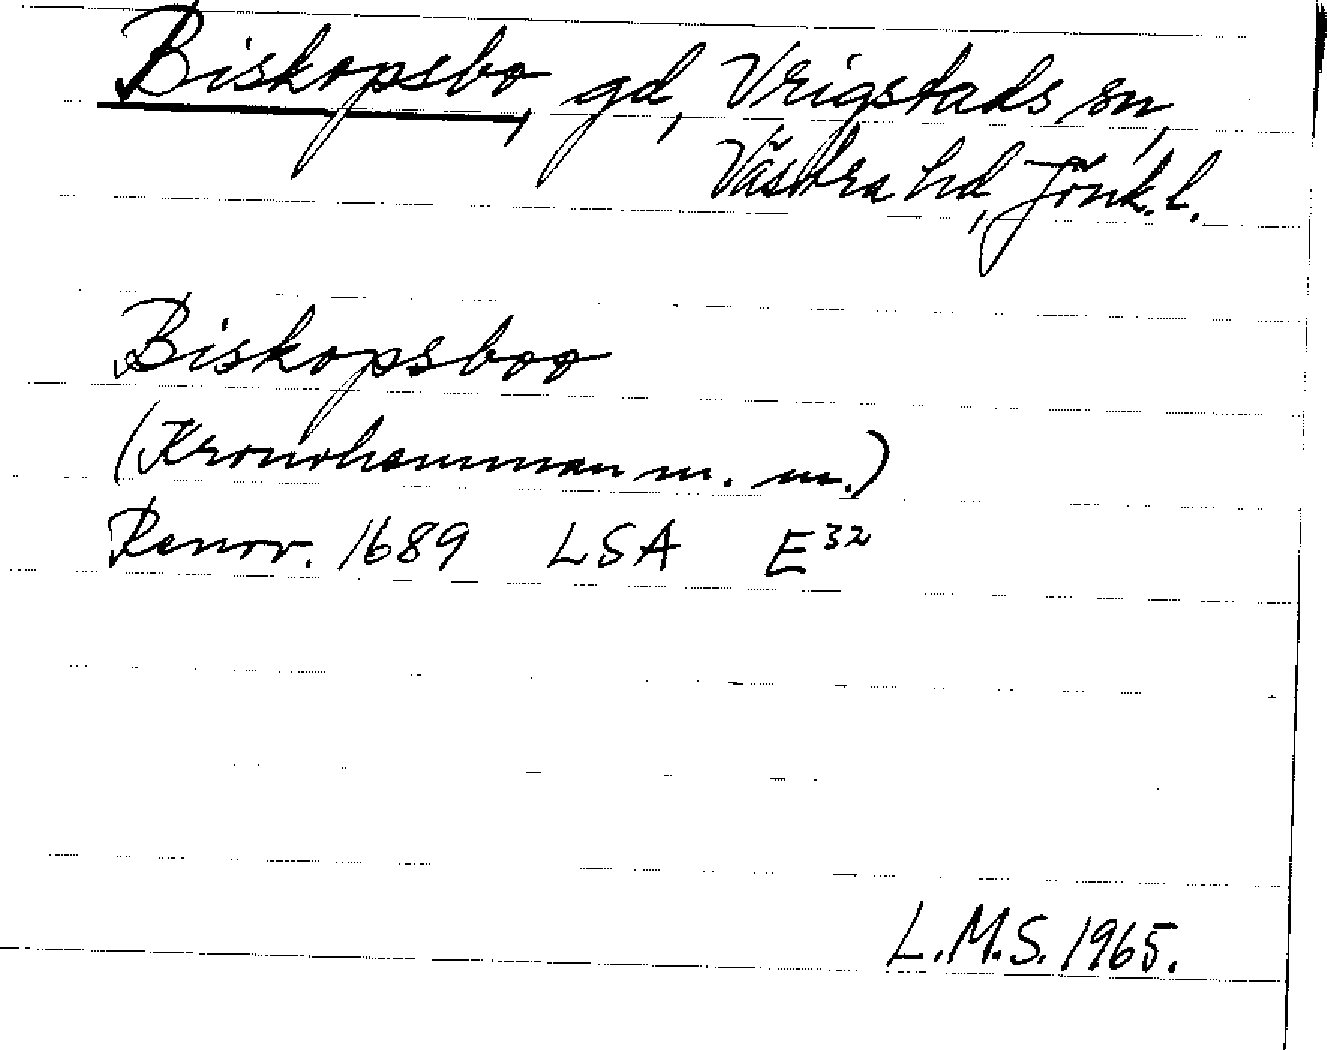 Biskopsbo, gd, Vrigstads sn,
Västra hd, Jönk. l.
Biskopsboo
(Kronohemman m. m.)
Renov. 1689 LSA E³²
L.M.S. 1965.